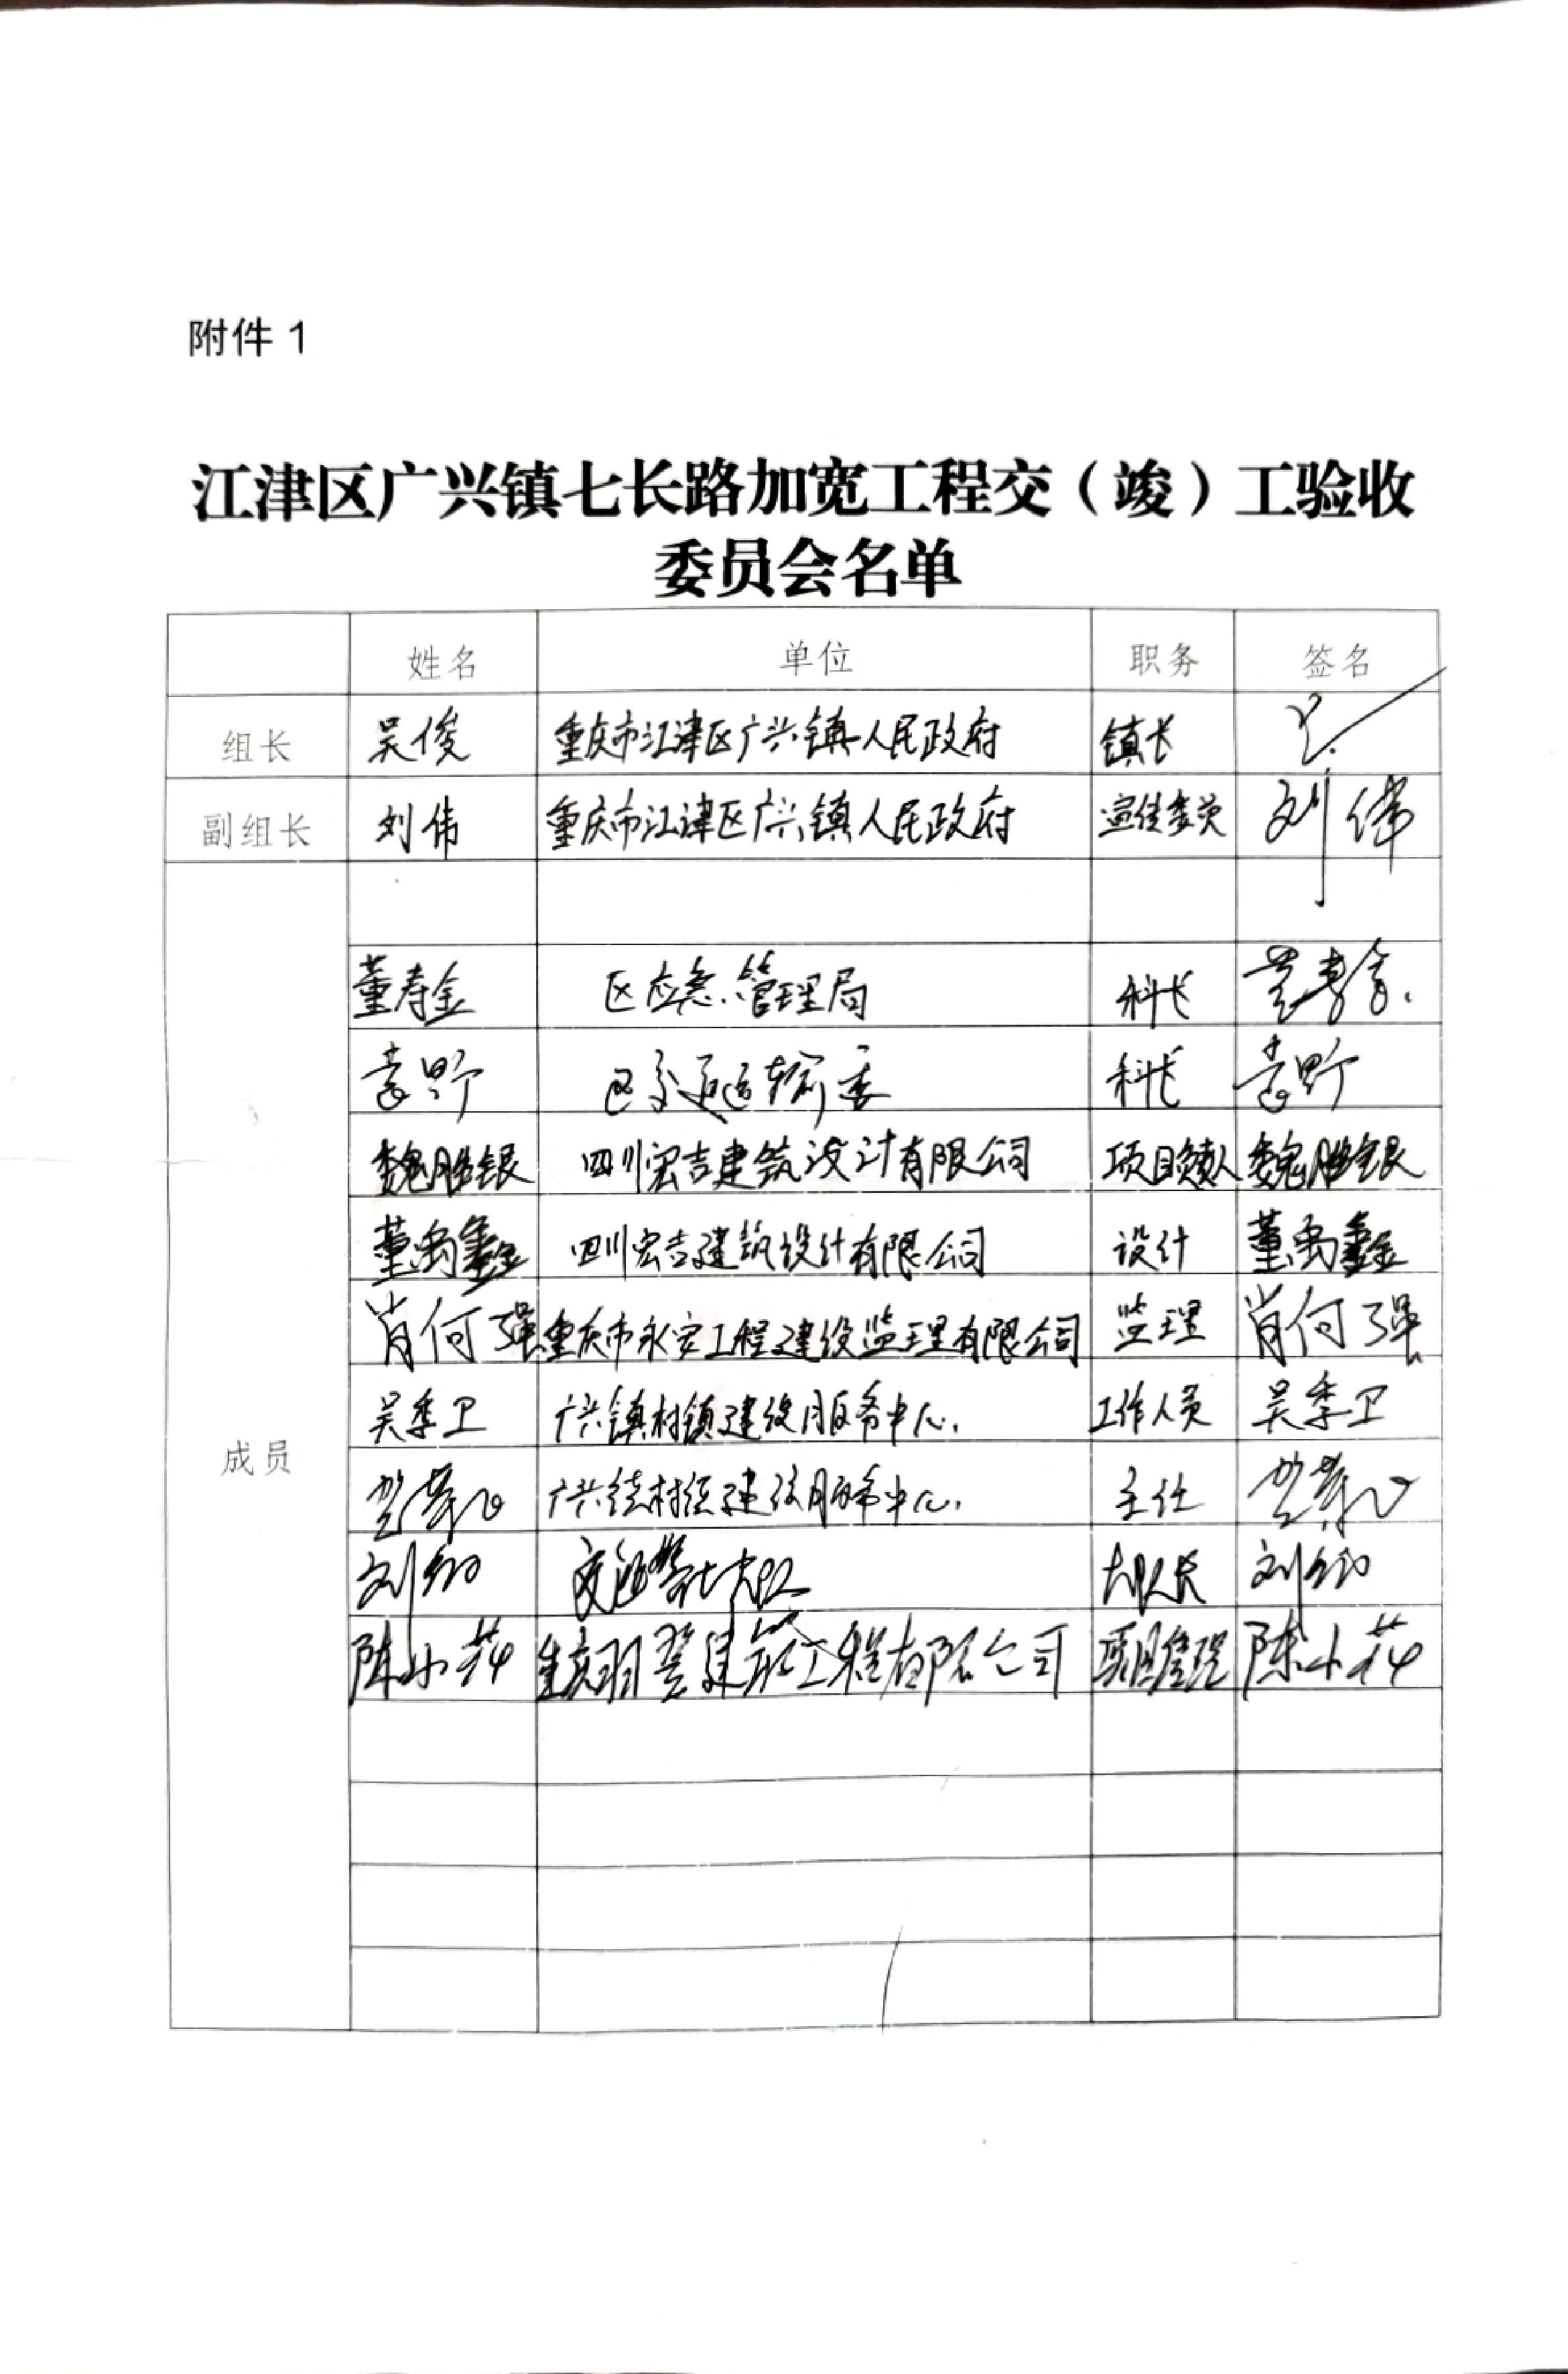 附件 1
江津区广兴镇七长路加宽工程交（竣）工验收
委员会名单
姓名 单位 职务 签名
组长 吴俊 重庆市江津区广兴镇人民政府 镇长
副组长 刘伟 重庆市江津区广兴镇人民政府 宣传委员 刘伟
董寿金 区应急管理局 科长 董寿金
袁野 区交通运输委 科长 袁野
魏胜银 四川宏吉建筑设计有限公司 项目负责人 魏胜银
董禹鑫 四川宏吉建筑设计有限公司 设计 董禹鑫
肖何强 重庆市永安工程建设监理有限公司 监理 肖何强
吴季卫 广兴镇村镇建设服务中心 工作人员 吴季卫
成员
广兴镇村镇建设服务中心 主任
刘 大队长 刘
陈小花 建筑工程有限公司 陈小花